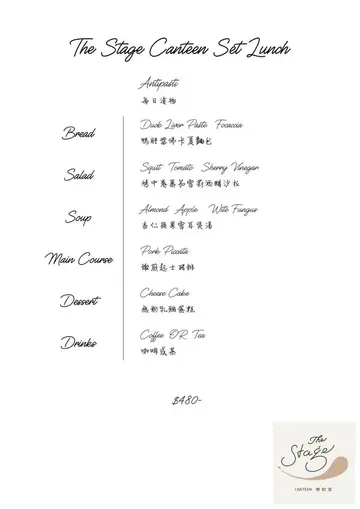 The Stage Canteen Set Lunch
Antipasti
每日漬物
Bread
Duck Liver Paste Focaccia
鴨肝醬佛卡夏麵包
Salad
Squit Tomato Sherry Vinegar
透中卷番茄雪莉酒醋沙拉
Soup
Almond Apple Wite Fungus
杏仁蘋果雪耳煲湯
Main Course
Pork Piccata
嫩煎起士豬排
Dessert
Cheese Cake
無粉乳酪蛋糕
Drinks
Coffee OR Tea
咖啡或茶
$480-
The
Stage
CANTEEN